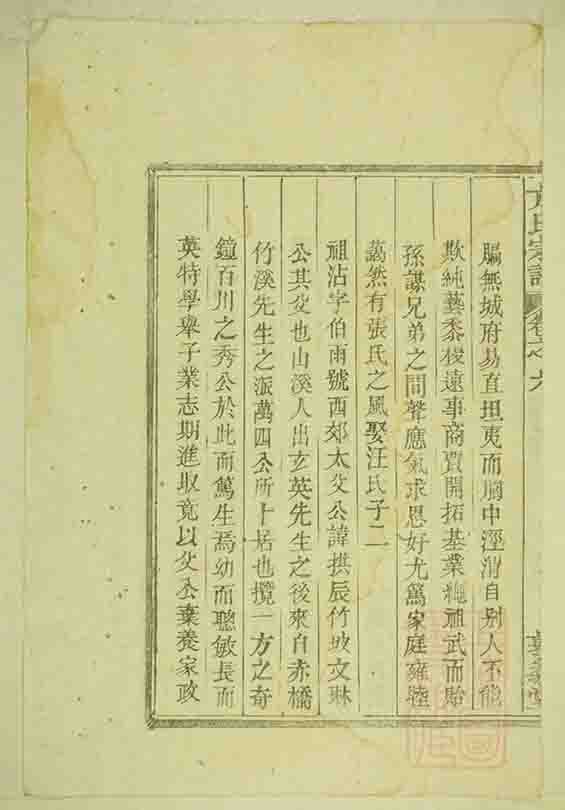 方氏宗譜 卷之六
膓無城府易直坦夷而胸中涇渭自别人不能
欺純藝黍稷遠事商賈開拓基業繩祖武而貽
孫謀兄弟之間聲應氣求恩好尤篤家庭雍睦
藹然有張氏之風娶汪氏子二
祖沾字伯雨號西郊太父公諱拱辰竹坡文琳
公其父也山溪人出玄英先生之後來自赤橋
竹溪先生之派萬四公所卜居也攬一方之奇
鐘百川之秀公於此而篤生焉幼而聰敏長而
英特學舉子業志期進取竟以父公棄養家政